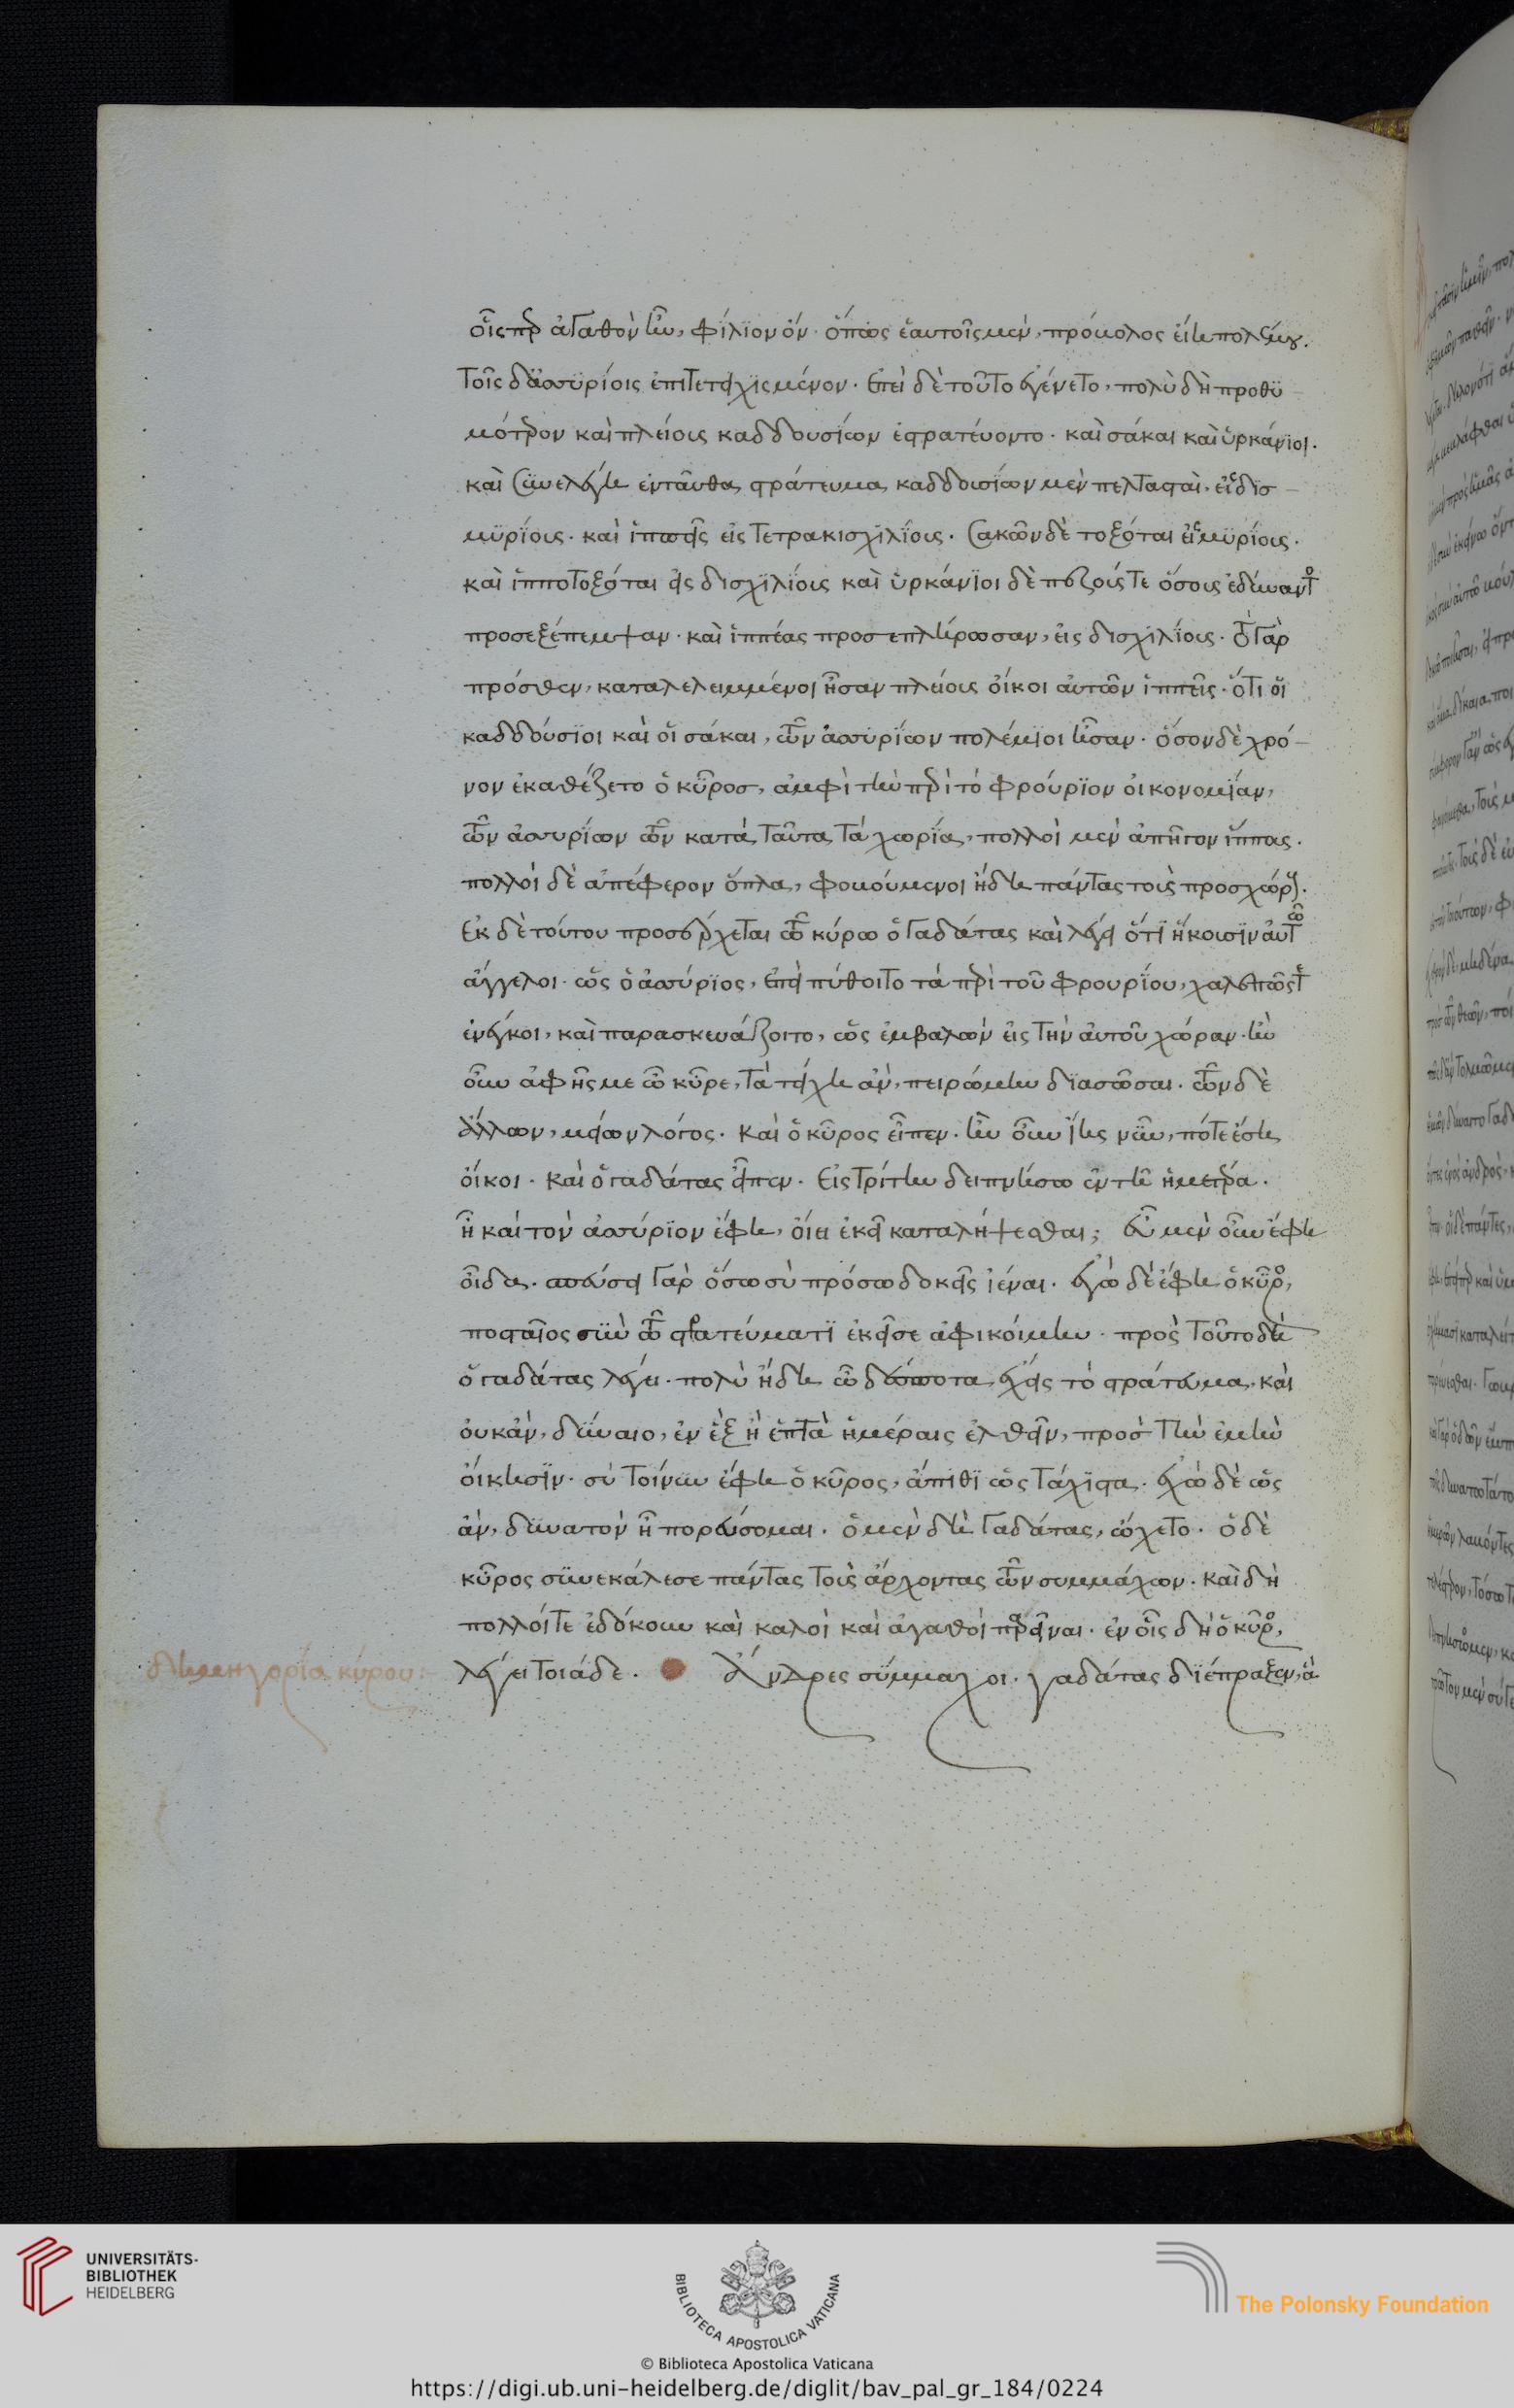 οἷς περ ἀγαθὸν ἦν, φίλϊον ὄν. ὅπως ἑαυτοῖς μὲν, πρόβολος εἴη πολέμου.
τοῖς δ'ἀσσϋρίοις ἐπιτετειχϊσμένον. Ἐπεὶ δὲ τοῦτο ἐγένετο, πολὺ δὴ προθϋ –
μότερον καὶ πλείους καδδουσίων ἐστρατεύοντο. καὶ σάκαι καὶ ὑρκάνϊοι.
καὶ σϋνελέγη ἐνταῦθα στράτευμα καδδουσίων μὲν πελτασταὶ. εἰς δϊσ –
μϋρίους. καὶ ἱππεῖς εἰς τετρακισχιλΐους. Σακῶν δὲ τοξόται εἰς μϋρίους.
καὶ ἱπποτοξόται εἰς δισχϊλΐους καὶ ὑρκάνϊοι δὲ πεζούς τε ὅσους ἐδύναντο
προσεξέπεμψαν. καὶ ἱππέας προσεπλήρωσαν, εἰς δισχϊλΐους. οὐ γὰρ
πρόσθεν, καταλελειμμένοι ἦσαν πλείους οἴκοι αὐτῶν ἱππεῖς. ὅτι οἱ
καδδούσϊοι καὶ οἱ σάκαι, τῶν ἀσσυρΐων πολέμϊοι ἦσαν. ὅσον δὲ χρό –
νον ἐκαθέζετο ὁ κῦροσ, ἀμφὶ τὴν περὶ τὸ φρούρϊον οἰκονομΐαν,
τῶν ἀσσυρΐων τῶν κατὰ ταῦτα τὰ χωρΐα, πολλοὶ μὲν ἀπῆγον ἵππους.
πολλοὶ δὲ ἀπέφερον ὅπλα, φοβούμενοι ἤδη πάντας τοὺς προσχώρους.
Ἐκ δὲ τούτου προσέρχεται τῶ κύρω ὁ γαδάτας καὶ λέγει ὅτϊ ἥκουσϊν αὐτῶ
ἄγγελοι. ὡς ὁ ἀσσύρϊος, ἐπεὶ πύθοιτο τὰ περὶ τοῦ φρουρΐου, χαλεπῶς τε
ἐνέγκοι, καὶ παρασκευάζοιτο, ὡς ἐμβαλῶν εἰς τὴν αὐτοῦ χώραν. ἢν
οὖν ἀφῆς με ὦ κῦρε, τὰ τείχη ἂν, πειρώμην δϊασῶσαι. τῶν δὲ
ἄλλων, μείων λόγος. Καὶ ὁ κῦρος εἶπεν. ἢν οὖν ἴης νῦν, πότε ἔση
οἴκοι. Καὶ ὁ γαδάτας εἶπεν. Εἰς τρίτην δειπνήσω ἐν τῆ ἡμετέρα.
ἦ καὶ τὸν ἀσσύρϊον ἔφη, οἴει ἐκεῖ καταλήψεσθαι; εὖ μὲν οὖν ἔφη
οἶδα. σπεύσει γὰρ ὅσω σὺ πρόσω δοκεῖς ἰέναι. ἐγὼ δὲ ἔφη ὁ κῦρος,
ποσταῖος σϋν τῶ στρατεύματϊ ἐκεῖσε ἀφικοίμην. πρὸς τοῦτο δὴ
ὁ γαδάτας λέγει. πολὺ ἤδη ὦ δέσποτα, ἔχεις τὸ στράτευμα. καὶ
οὐκ ἂν, δΰναιο, ἐν ἓξ ἢ ἑπτὰ ἡμέραις ἐλθεῖν, πρὸσ τὴν ἐμὴν
οἴκησϊν. σὺ τοίνϋν ἔφη ὁ κῦρος, ἄπιθϊ ὡς τάχϊστα. ἐγὼ δὲ ὡς
ἂν, δϋνατὸν ἦ πορεύσομαι. ὁ μὲν δὴ γαδάτας, ὤχετο. ὁ δὲ
κῦρος σϋνεκάλεσε πάντας τοὺς ἄρχοντας τῶν συμμάχων. καὶ δὴ
πολλοί τε ἐδόκουν καὶ καλοὶ καὶ ἀγαθοὶ παρεῖναι. ἐν οἷς δὴ ὁ κῦρος,
δημηγορΐα κύρου:
λέγει τοιάδε. Ἄνδρες σΰμμαχοι. γαδάτας δϊέπραξεν, ἃ
UNIVERSITÄTS-
BIBLIOTHEK
HEIDELBERG
BIBLIOTECA APOSTOLICA VATICANA
The Polonsky Foundation
© Biblioteca Apostolica Vaticana
https://digi.ub.uni-heidelberg.de/diglit/bav_pal_gr_184/0224